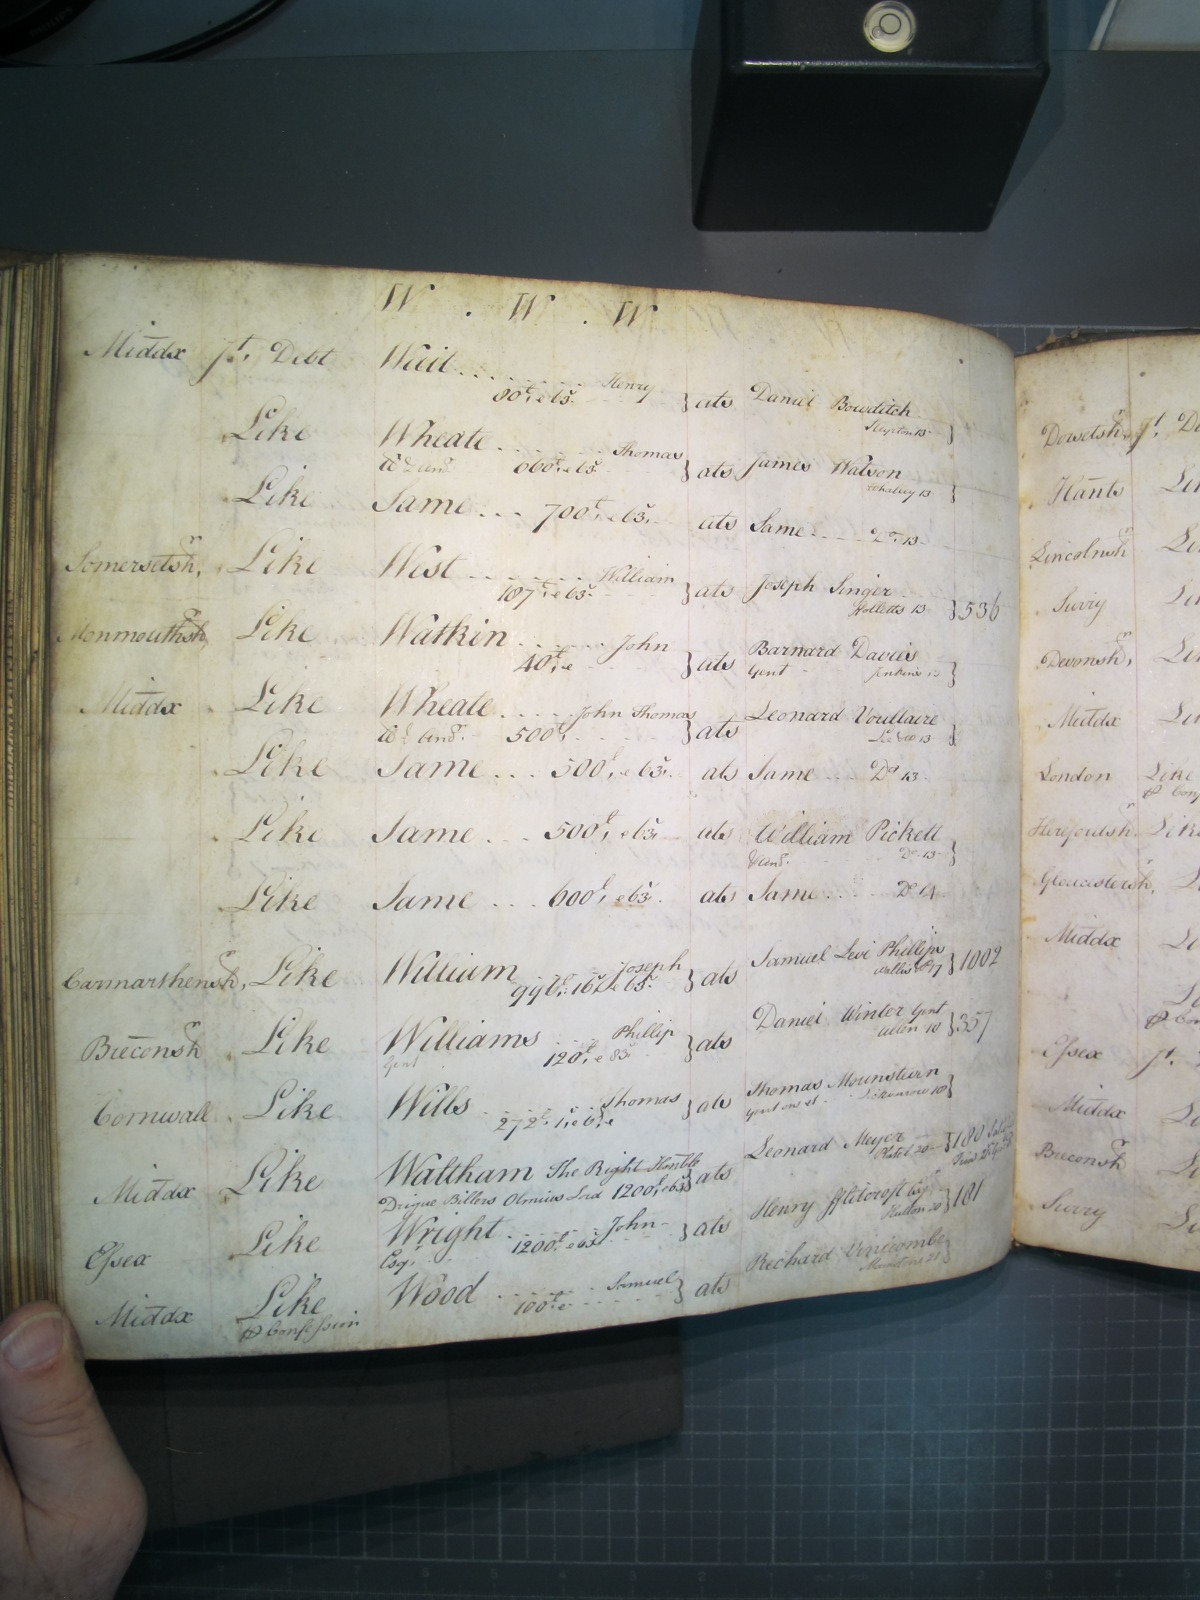 W . W . W
Middx Jt. Debt Wait Henry
80£ e 63s } ats Daniel Bowditch
13 }
Like Wheate Thomas
660£ e 63s } ats James Watson
Whalley 13 }
Like Same 700£ e 63s ats Same Do 13
Somersetsh, Like West William
187£ e 63s } ats Joseph Singer
13 } 536
Monmouthsh Like Watkin John
40£ e } ats Barnard Davies
Gent Jenkins 13 }
Middx Like Wheate John Thomas
500£ } ats Leonard Voullaire
13 }
Like Same 500£ e 63s ats Same Do 13
Like Same 500£ e 63s ats William Pickett
Do 13 }
Like Same 600£ e 63s ats Same Do 14
Carmarthensh, Like William Joseph
996£ 16s e 63s } ats Samuel Levi Phillips
Wallis 17 } 1002
Breconsh Like Williams Phillip
Gent 120£ e 83s } ats Daniel Winter Gent
Allen 18 } 357
Cornwall Like Wills Thomas
272£ 1s e 6d e } ats Thomas Mounstevn
Gent one &c 18 }
Middx Like Waltham The Right Honble
Drigue Billers Olmius Lord 1200£ e 63s } ats Leonard Meyer
Platel 20 } 180
Essex Like Wright John
Esqr 1200£ e 63s } ats Henry Fflitcroft Esqr
Hutton 20 } 181
Middx Like Wood Samuel
& Confession 100£ e } ats Richard Vinicombe
21 }
Dorsetsh, Jt.
Hants
Lincolnsh
Surry
Devonsh,
Middx
London Like
Herefordsh.
Gloucestersh,
Middx
Essex Jt.
Middx
Breconsh
Surry